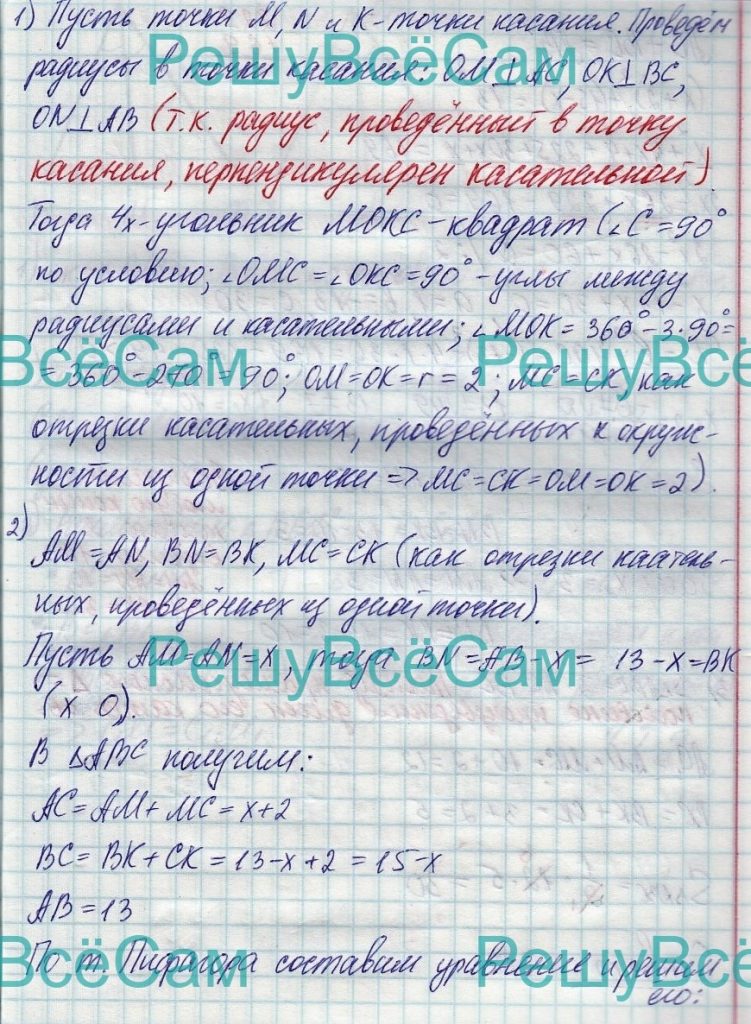 1) Пусть точки M, N и K - точки касания. Проведём
РешуВсёСам
радиусы в точки касания: OM⊥AC, OK⊥BC,
ON⊥AB (т.к. радиус, проведённый в точку
касания, перпендикулярен касательной).
Тогда 4х-угольник MOKC - квадрат (∠C = 90°
по условию; ∠OMC = ∠OKC = 90° - углы между
радиусами и касательными; ∠MOK = 360° - 3·90° =
ВсёСам РешуВсё
= 360° - 270° = 90°; OM = OK = r = 2; MC = CK как
отрезки касательных, проведённых к окруж-
ности из одной точки => MC = CK = OM = OK = 2).
2)
AM = AN, BN = BK, MC = CK (как отрезки каатель-
ных, проведённых из одной точки).
Пусть AM = AN = x, тогда BN = AB - x = 13 - x = BK
РешуВсёСам
(x 0).
В △ABC получим:
AC = AM + MC = x + 2
BC = BK + CK = 13 - x + 2 = 15 - x
AB = 13
ВсёСам РешуВсё
По т. Пифагора составим уравнение и решим
его: